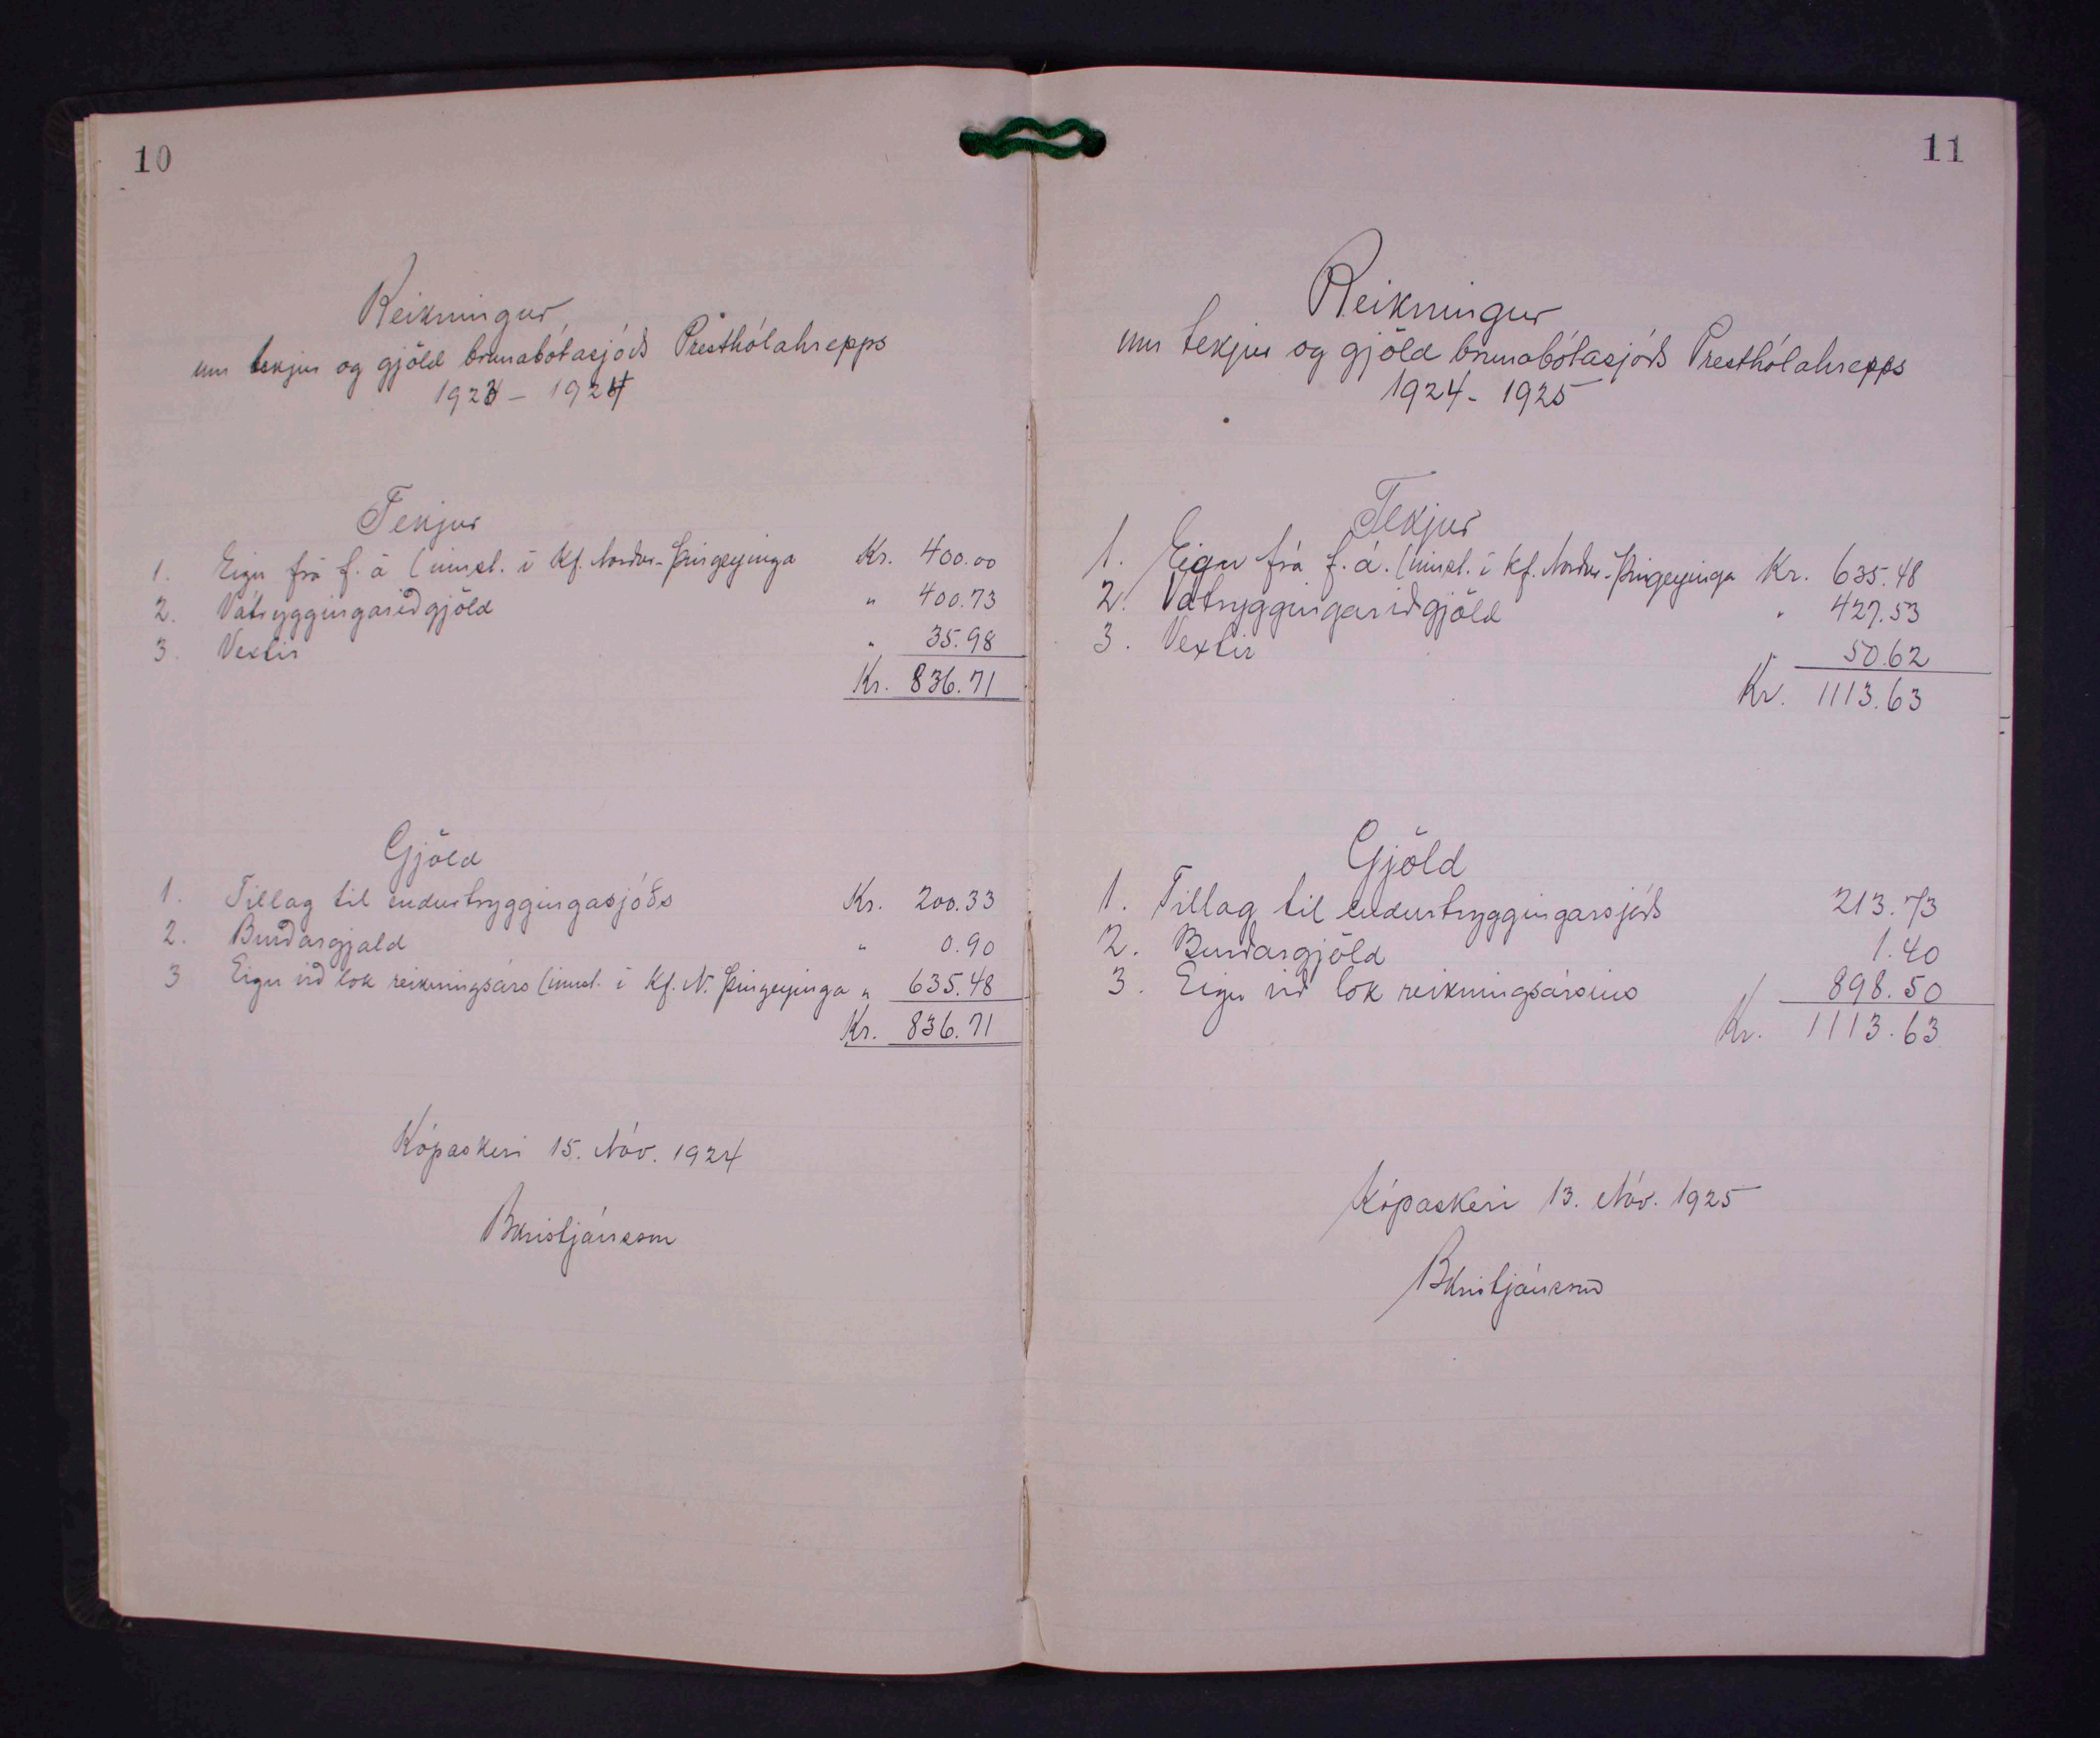 10
Reikningur
um tekjur og gjöld brunabótasjóðs Presthólahrepps
1923 - 1924
Tekjur
1. Eign frá f. á (innst. í Kf. Norður-Þingeyinga Kr. 400.00
2. Vátryggingariðgjöld " 400.73
3. Vextir " 35.98
Kr. 836.71
Gjöld
1. Tillag til endurtryggingasjóðs Kr. 200.33
2. Burðargjald " 0.90
3 Eign við lok reikningsárs (innst. í Kf. N. Þingeyinga " 635.48
Kr. 836.71
Kópaskeri 15. Nóv. 1924
BKristjánsson
11
Reikningur
um tekjur og gjöld brunabótasjóðs Presthólahrepps
1924 - 1925
Tekjur
1. Eign frá f. á. (innst. í Kf. Norður-Þingeyinga Kr. 635.48
2. Vátryggingariðgjöld " 427.53
3. Vextir " 50.62
Kr. 1113.63
Gjöld
1. Tillag til endurtryggingarsjóðs 213.73
2. Burðargjöld 1.40
3. Eign við lok reikningsársins 898.50
Kr. 1113.63
Kópaskeri 13. Nóv. 1925
BKristjánsson